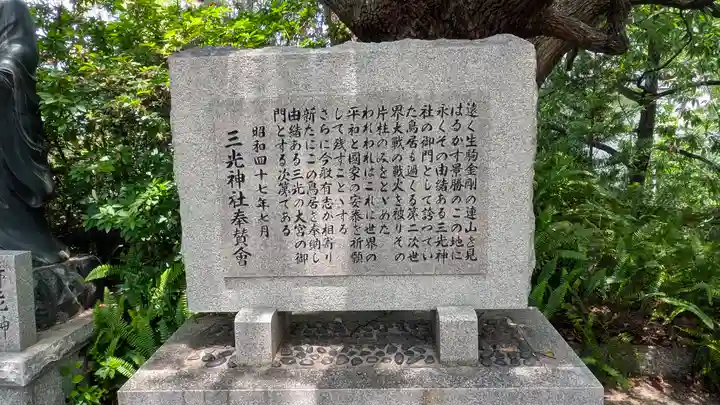 遠く生駒金剛の連山を見
はるかす景勝のこの地に
永くその由緒ある三光神
社の御門として誇ってい
た鳥居も過ぐる第二次世
界大戦の戦火を被りその
片柱のみをとゞめた
われわれはこれに世界の
平和と國家の安泰を祈願
して残すことゝする
さらに今般有志が相寄り
新たにこの鳥居を奉納し
由緒ある三光の大宮の御
門とする次第である
昭和四十七年七月
三光神社奉賛會
光神